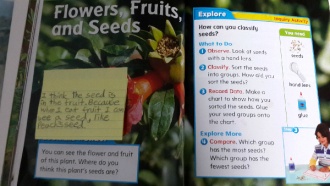 Flowers, Fruits,
and Seeds
I think the seed is
in the fruit. Because
when I eat fruit I can
see a seed, like
You can see the flower and fruit
of this plant. Where do you
think this plant's seeds are?
Explore
Inquiry Activity
How can you classify
seeds?
What to Do
1 Observe. Look at seeds
with a hand lens.
2 Classify. Sort the seeds
into groups. How did you
sort the seeds?
3 Record Data. Make a
chart to show how you
sorted the seeds. Glue
your seed groups onto
the chart.
Explore More
4 Compare. Which group
has the most seeds?
Which group has the
fewest seeds?
You need
seeds
hand lens
glue